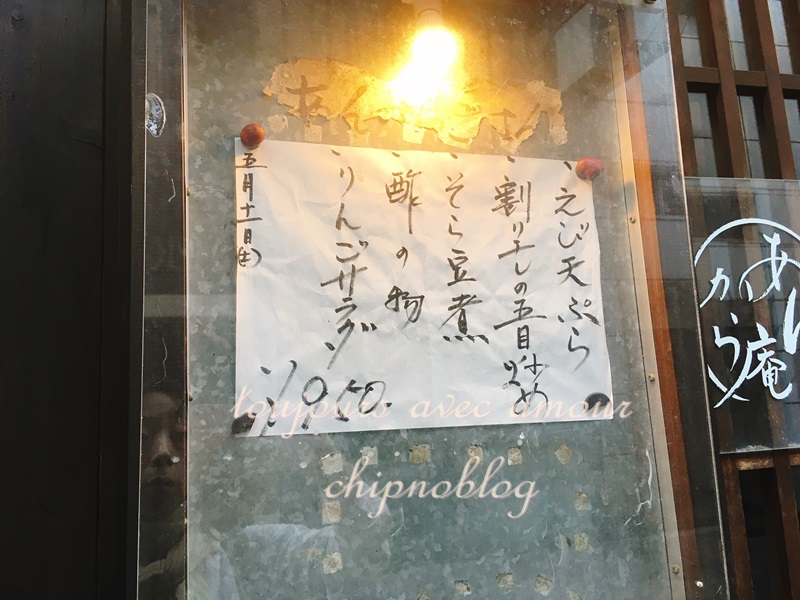 ・えび天ぷら
・割り干しの五目炒め
・そら豆煮
・酢の物
・りんごサラダ
¥950
五月十一日(土)
toujours avec amour
chipnoblog